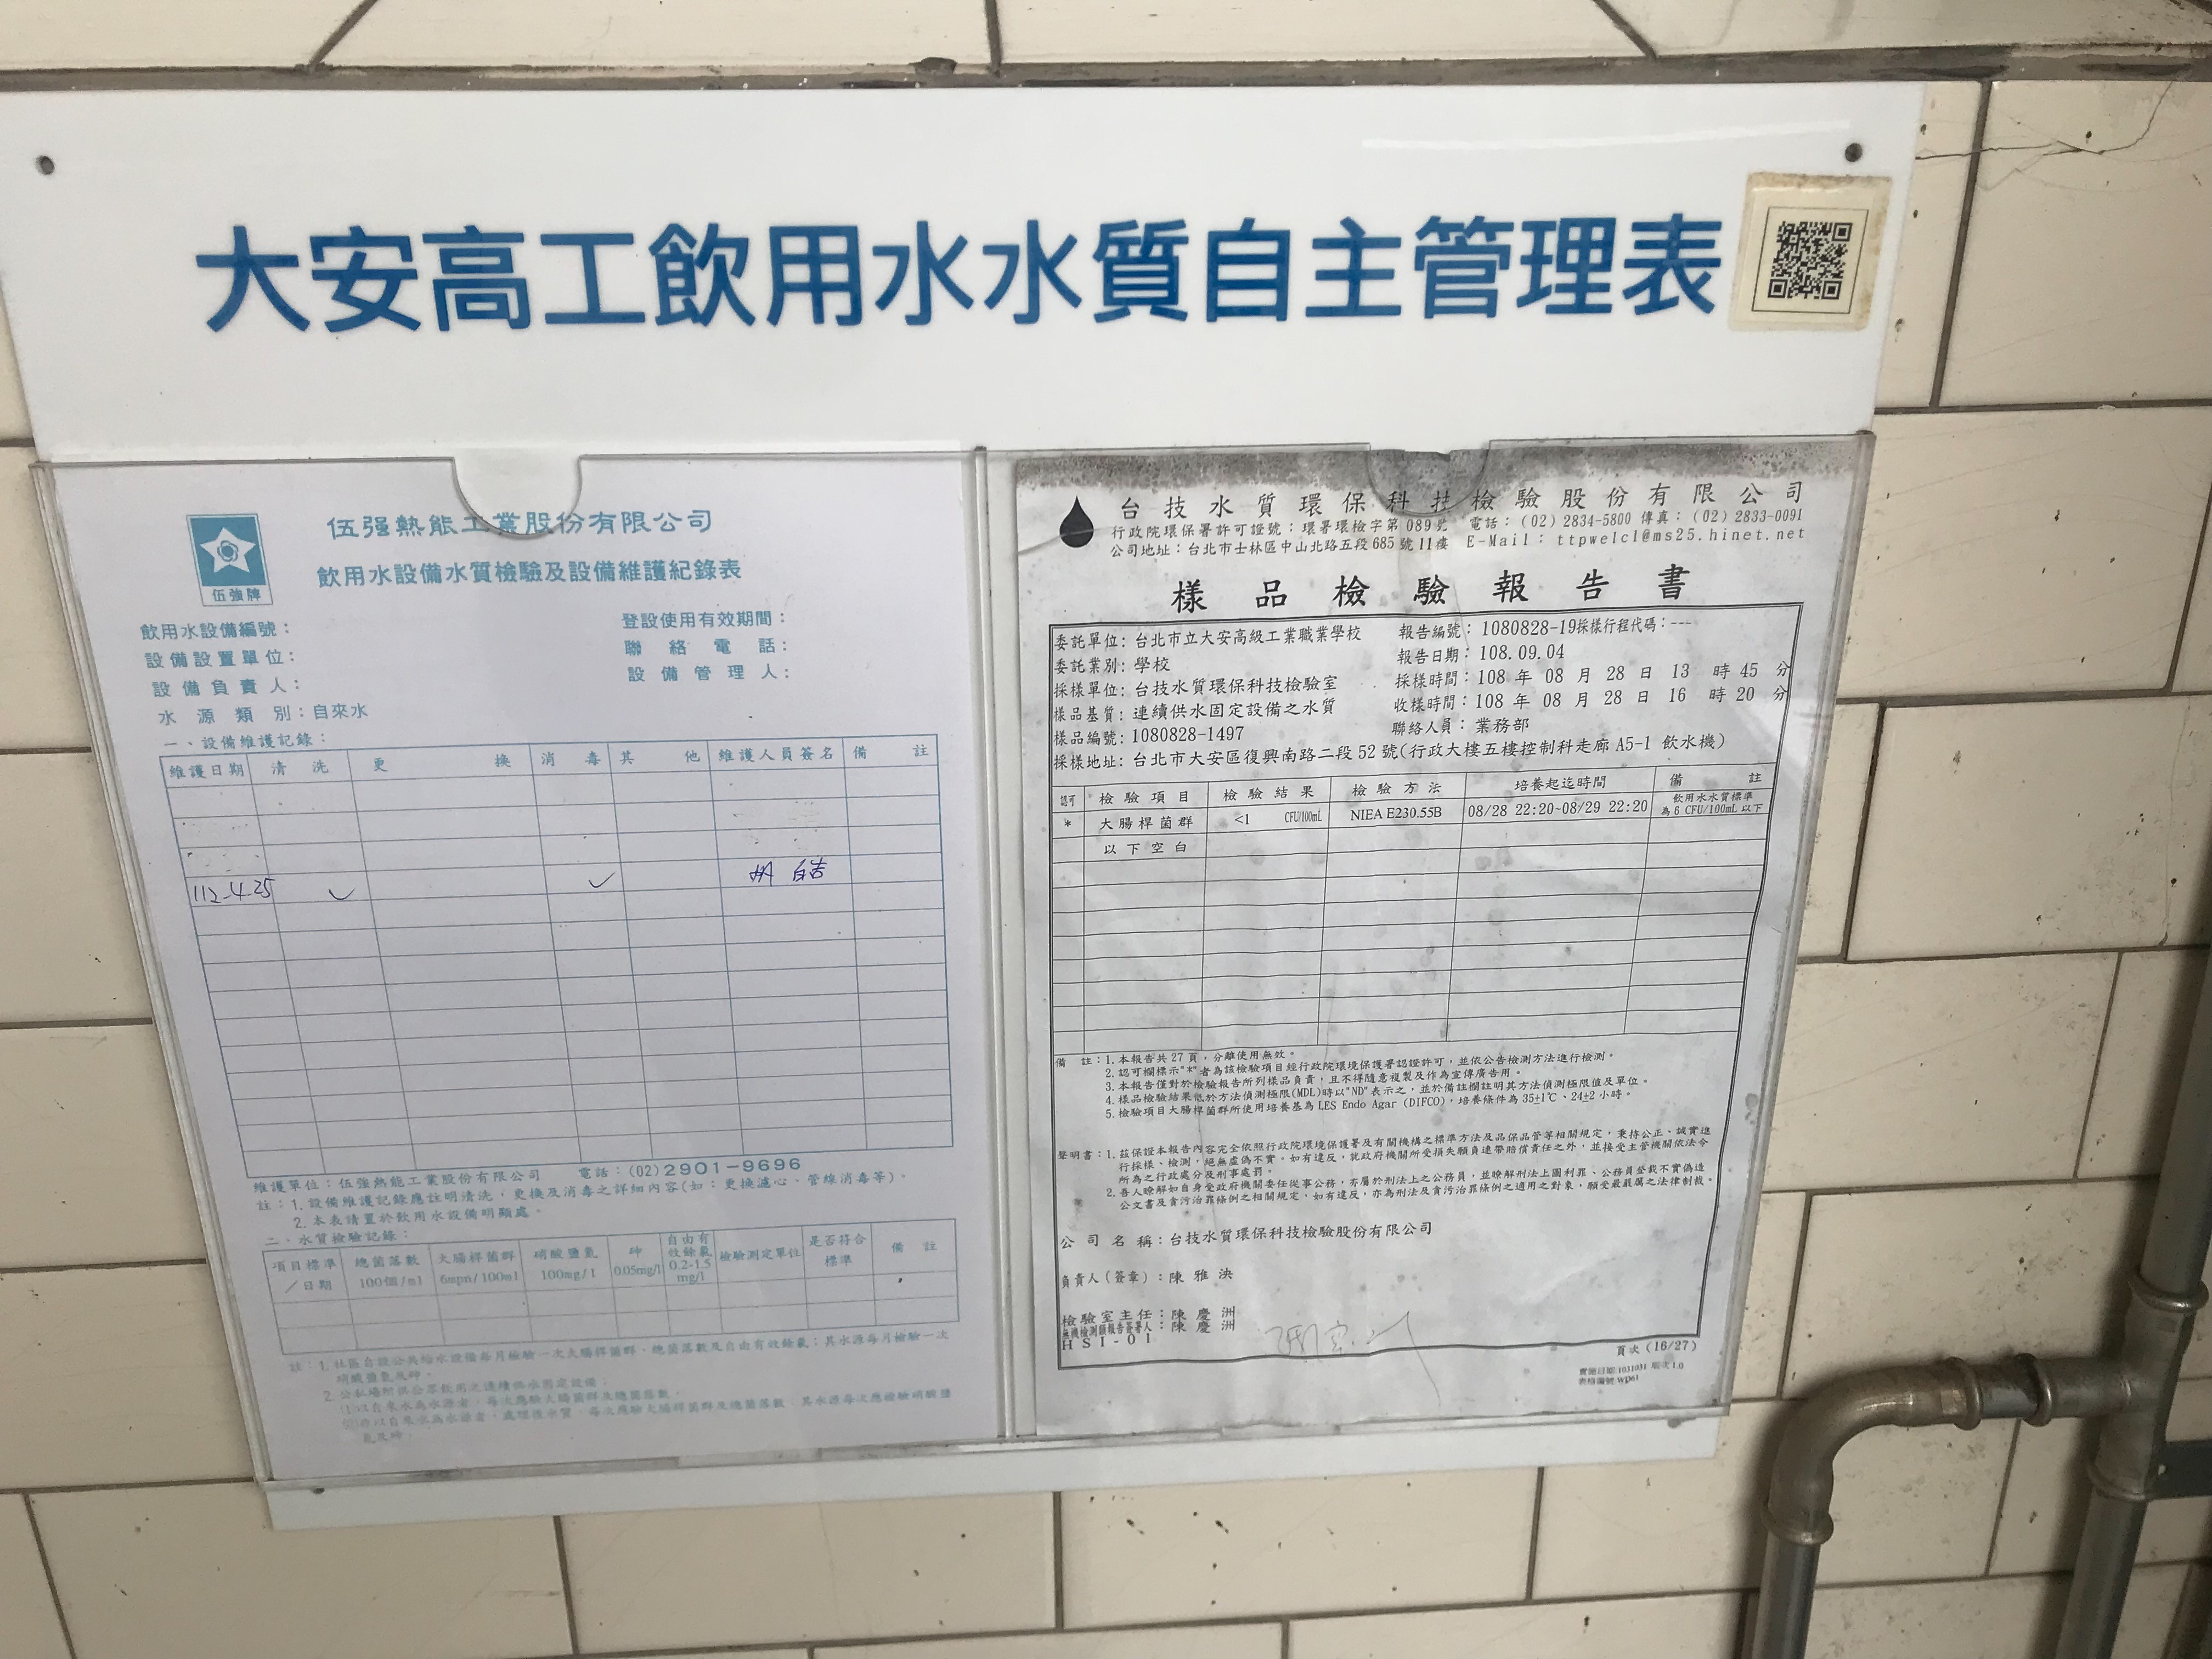 大安高工飲用水水質自主管理表
伍強牌
伍强熱能工業股份有限公司
飲用水設備水質檢驗及設備維護紀錄表
飲用水設備編號：
登設使用有效期間：
設備設置單位：
聯絡電話：
設備負責人：
設備管理人：
水源類別：自來水
一、設備維護記錄：
維護日期 清洗 更換 消毒 其他 維護人員簽名 備註
112.4.25 ✓ ✓
維護單位：伍强熱能工業股份有限公司 電話：(02)2901-9696
註：1. 設備維護記錄應註明清洗，更換及消毒之詳細內容(如：更換濾心、管線消毒等)。
2. 本表請置於飲用水設備明顯處。
二、水質檢驗記錄：
項目標準／日期 總菌落數 100個/ml 大腸桿菌群 6mpn/100ml 硝酸鹽氮 100mg/l 砷 0.05mg/l 自由有效餘氯 0.2-1.5 mg/l 檢驗測定單位 是否符合標準 備註
註：1. 社區自設公共給水設備每月檢驗一次大腸桿菌群、總菌落數及自由有效餘氯；其水源每月檢驗一次
硝酸鹽氮及砷。
2. 公私場所供公眾飲用之連續供水固定設備：
(1)以自來水為水源者，每次應驗大腸桿菌群及總菌落數。
台技水質環保科技檢驗股份有限公司
行政院環保署許可證號：環署環檢字第089號 電話：(02) 2834-5800 傳真：(02) 2833-0091
公司地址：台北市士林區中山北路五段685號11樓 E-Mail：ttpwelcl@ms25.hinet.net
樣品檢驗報告書
委託單位：台北市立大安高級工業職業學校 報告編號：1080828-19採樣行程代碼：---
委託業別：學校 報告日期：108.09.04
採樣單位：台技水質環保科技檢驗室 採樣時間：108 年 08 月 28 日 13 時 45 分
樣品基質：連續供水固定設備之水質 收樣時間：108 年 08 月 28 日 16 時 20 分
樣品編號：1080828-1497 聯絡人員：業務部
採樣地址：台北市大安區復興南路二段52號(行政大樓五樓控制科走廊 A5-1 飲水機)
認可 檢驗項目 檢驗結果 檢驗方法 培養起迄時間 備註
* 大腸桿菌群 <1 CFU/100mL NIEA E230.55B 08/28 22:20~08/29 22:20 飲用水水質標準為6 CFU/100mL以下
以下空白
備註：1. 本報告共27頁，分離使用無效。
2. 認可欄標示"*"者為該檢驗項目經行政院環境保護署認證許可，並依公告檢測方法進行檢測。
3. 本報告僅對於檢驗報告所列樣品負責，且不得隨意複製及作為宣傳廣告用。
4. 樣品檢驗結果低於方法偵測極限(MDL)時以"ND"表示之，並於備註欄註明其方法偵測極限值及單位。
5. 檢驗項目大腸桿菌群所使用培養基為 LES Endo Agar (DIFCO)，培養條件為 35±1℃、24±2 小時。
聲明書：1. 茲保證本報告內容完全依照行政院環境保護署及有關機構之標準方法及品保品管等相關規定，秉持公正、誠實進
行採樣、檢測，絕無虛偽不實。如有違反，就政府機關所受損失願負連帶賠償責任之外，並接受主管機關依法令
所為之行政處分及刑事處罰。
2. 吾人瞭解如自身受政府機關委任從事公務，亦屬於刑法上之公務員，並瞭解刑法上圖利罪、公務員登載不實偽造
公文書及貪污治罪條例之相關規定，如有違反，亦為刑法及貪污治罪條例之適用之對象，願受最嚴厲之法律制裁。
公司名稱：台技水質環保科技檢驗股份有限公司
負責人(簽章)：陳雅泱
檢驗室主任：陳慶洲
無機檢測類報告簽署人：陳慶洲
HSI-01
頁次 (16/27)